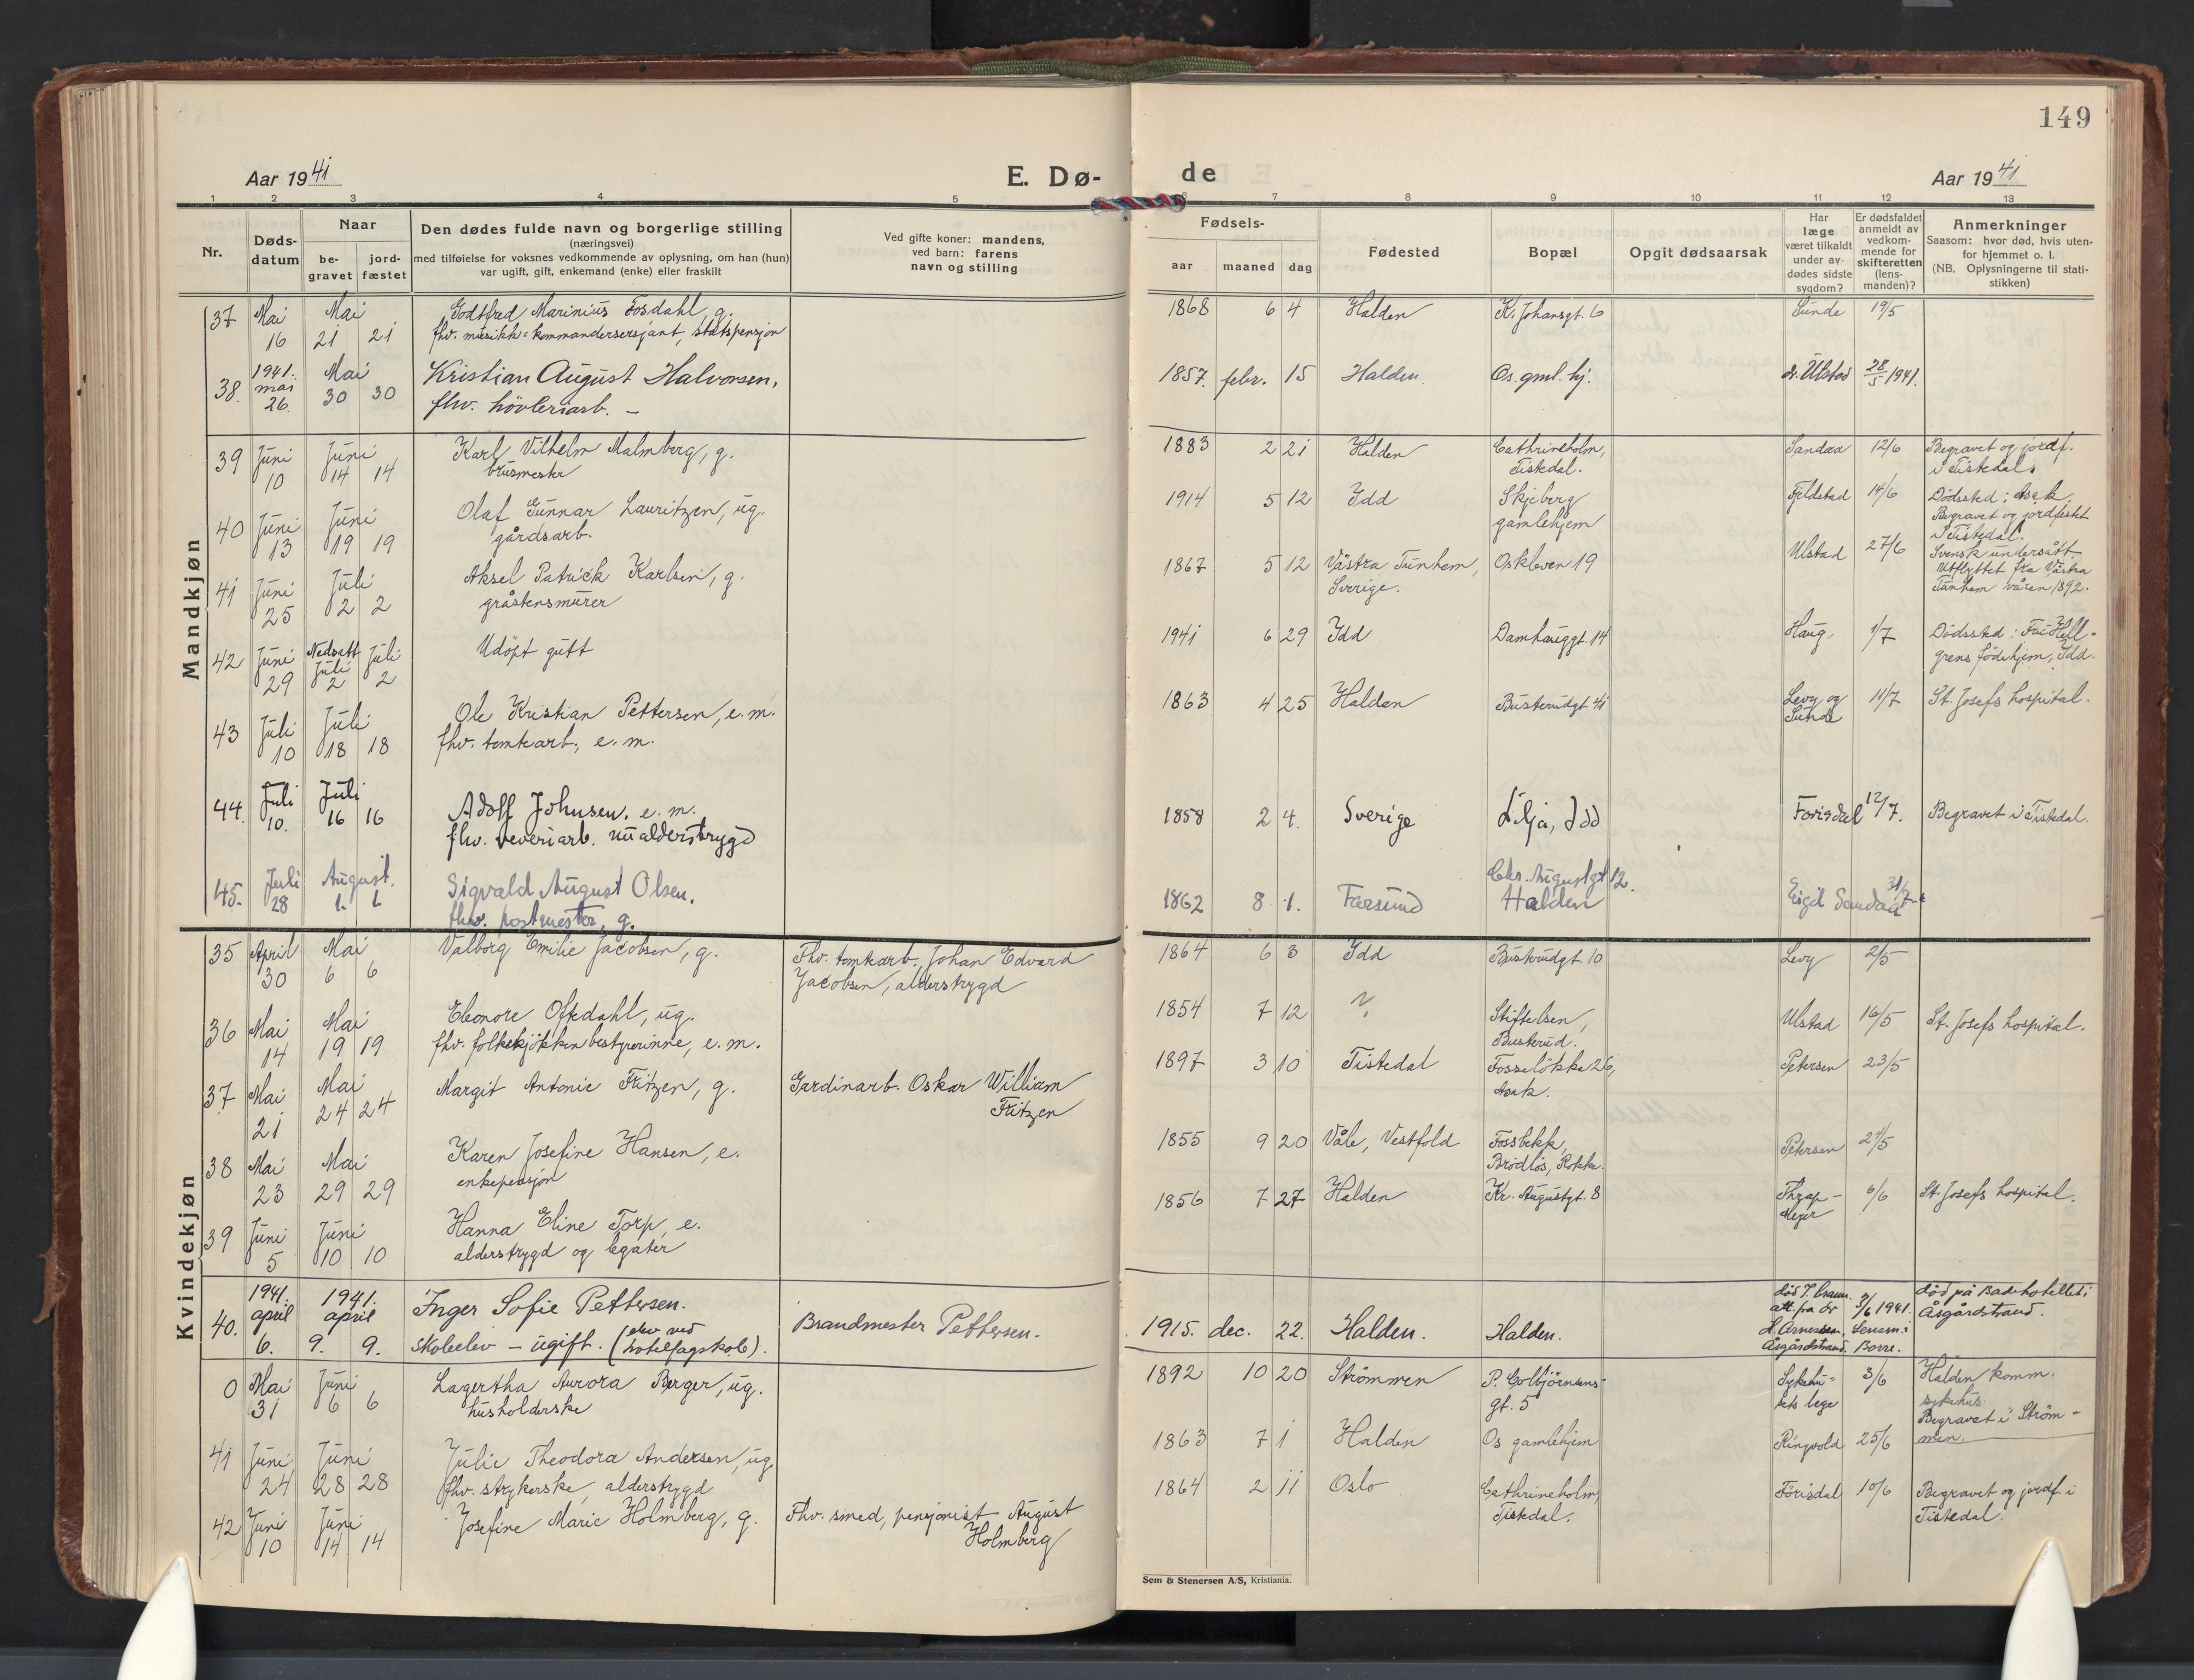 149
Aar 1941
E. Dø-
de
Aar 1941
1 2 3 4 5 6 7 8 9 10 11 12 13
Nr.
Døds-
datum
Naar
be-
gravet
jord-
fæstet
Den dødes fulde navn og borgerlige stilling
(næringsvei)
med tilføielse for voksnes vedkommende av oplysning, om han (hun)
var ugift, gift, enkemand (enke) eller fraskilt
Ved gifte koner: mandens,
ved barn: farens
navn og stilling
Fødsels-
aar maaned dag
Fødested
Bopæl
Opgit dødsaarsak
Har
læge
været tilkaldt
under av
dødes sidste
sygdom?
Er dødsfaldet
anmeldt av
vedkom-
mende for
skifteretten
(lens-
manden)?
Anmerkninger
Saasom: hvor død, hvis uten-
for hjemmet o. l.
(NB. Oplysningerne til stati-
stikken)
Mandkjøn
37 Mai 16 Mai 21 21 Godtfred Marinius Fosdahl, g.
fhv. musikk-kommandersersjant, statspensjon
1868 6 4 Halden K. Johansgt. 6 Sunde 19/5
38. 1941. mai 26. Mai 30 30 Kristian August Halvorsen,
fhv. hövleriarb. -
1857. febr. 15 Halden. Os. gml. hj. dr. Ulstad 28/5 1941.
39 Juni 10 Juni 14 14 Karl Vilhelm Malmberg, g.
brusmester
1883 2 21 Halden Cathrineholm,
Tistedal.
Sandaa 12/6 Begravet og jordf.
i Tistedal.
40 Juni 13 Juni 19 19 Olaf Gunnar Lauritzen, ug.
gårdsarb.
1914 5 12 Idd Skjeberg
gamlehjem
Fjeldstad 14/6 Dødssted: Asak.
Begravet og jordfestet
i Tistedal.
41 Juni 25 Juli 2 2 Aksel Patrick Karlsen, g.
gråstensmurer
1867 5 12 Västra Tunhem,
Sverige.
Oskleven 19 Ulstad 27/6 Svensk undersått.
Utflyttet fra Västra
Tunhem våren 1892.
42 Juni 29 Nedsatt Juli 2 Juli 2 Udöpt gutt
1941 6 29 Idd Damhauggt. 14 Haug 1/7 Dödssted: Fru Hell-
grens födehjem, Idd.
43 Juli 10 Juli 18 18 Ole Kristian Pettersen, e. m.
fhv. tomtearb., e. m.
1863 4 25 Halden Busterudgt 41 Levy og
Sunde
11/7 St. Josefs hospital.
44. Juli 10. Juli 16 16 Adolf Johnsen, e. m.
fhv. veveriarb. nu alderstrygd
1858 2 4. Sverige Lilja, Idd Forisdal 12/7. Begravet i Tistedal.
45. Juli 28 August. 1. 1. Sigvald August Olsen.
fhv. postmester, g.
1862 8 1. Farsund Chr. Augustgt 12.
Halden
Eigil Sandaa 31/7
Kvindekjøn
35 April 30 Mai 6 6 Valborg Emilie Jacobsen, g.
Fhv. tomtearb. Johan Edvard
Jacobsen, alderstrygd
1864 6 3 Idd Busterudgt. 10 Levy 2/5
36 Mai 14 Mai 19 19 Eleonore Oftedahl, ug.
fhv. folkekjökken bestyrerinne, e. m.
1854 7 12 ? Stiftelsen,
Busterud.
Ulstad 16/5 St. Josefs hospital.
37 Mai 21 Mai 24 24 Margit Antonie Fritzen, g.
Gardinarb. Oskar William
Fritzen
1897 3 10 Tistedal Fosselökka 26,
Asak.
Petersen 23/5
38 Mai 23 Mai 29 29 Karen Josefine Hansen, e.
enkepensjon
1855 9 20 Våle, Vestfold Fossbekk,
Brödlös, Rokke.
Petersen 27/5
39 Juni 5 Juni 10 10 Hanna Eline Torp, e.
alderstrygd og legater
1856 7 27 Halden Kr. Augustgt. 8 Thrap-
Meyer
6/6 St. Josefs hospital.
40. 1941. april 6. 1941. april 9. 9. Inger Sofie Pettersen.
Skoleelev - ugift. (elev ved
hotelfagskole).
Brandmester Pettersen.
1915. dec. 22. Halden. Halden.
att. fra dr
H. Arnesen,
Åsgårdstrand.
3/6 1941.
Lensm. i
Borre.
död på Badehotellet i
Åsgårdstrand.
0 Mai 31 Juni 6 6 Lagertha Aurora Berger, ug.
husholderske
1892 10 20 Strömmen P. Colbjörnsens-
gt. 5
Sykehu-
sets lege
3/6 Halden komm.
sykehus.
Begravet i Ström-
men.
41 Juni 24 Juni 28 28 Julie Theodora Andersen, ug.
fhv. strykerske, alderstrygd
1863 7 1 Halden Os gamlehjem Ringvold 25/6
42 Juni 10 Juni 14 14 Josefine Marie Holmberg, g.
Fhv. smed, pensjonist August
Holmberg
1864 2 11 Oslo Cathrineholm,
Tistedal.
Förisdal 10/6 Begravet og jordf. i
Tistedal.
Sem & Stenersen A/S, Kristiania.